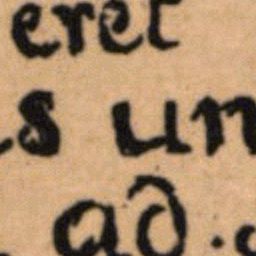 eret
s un
ad .